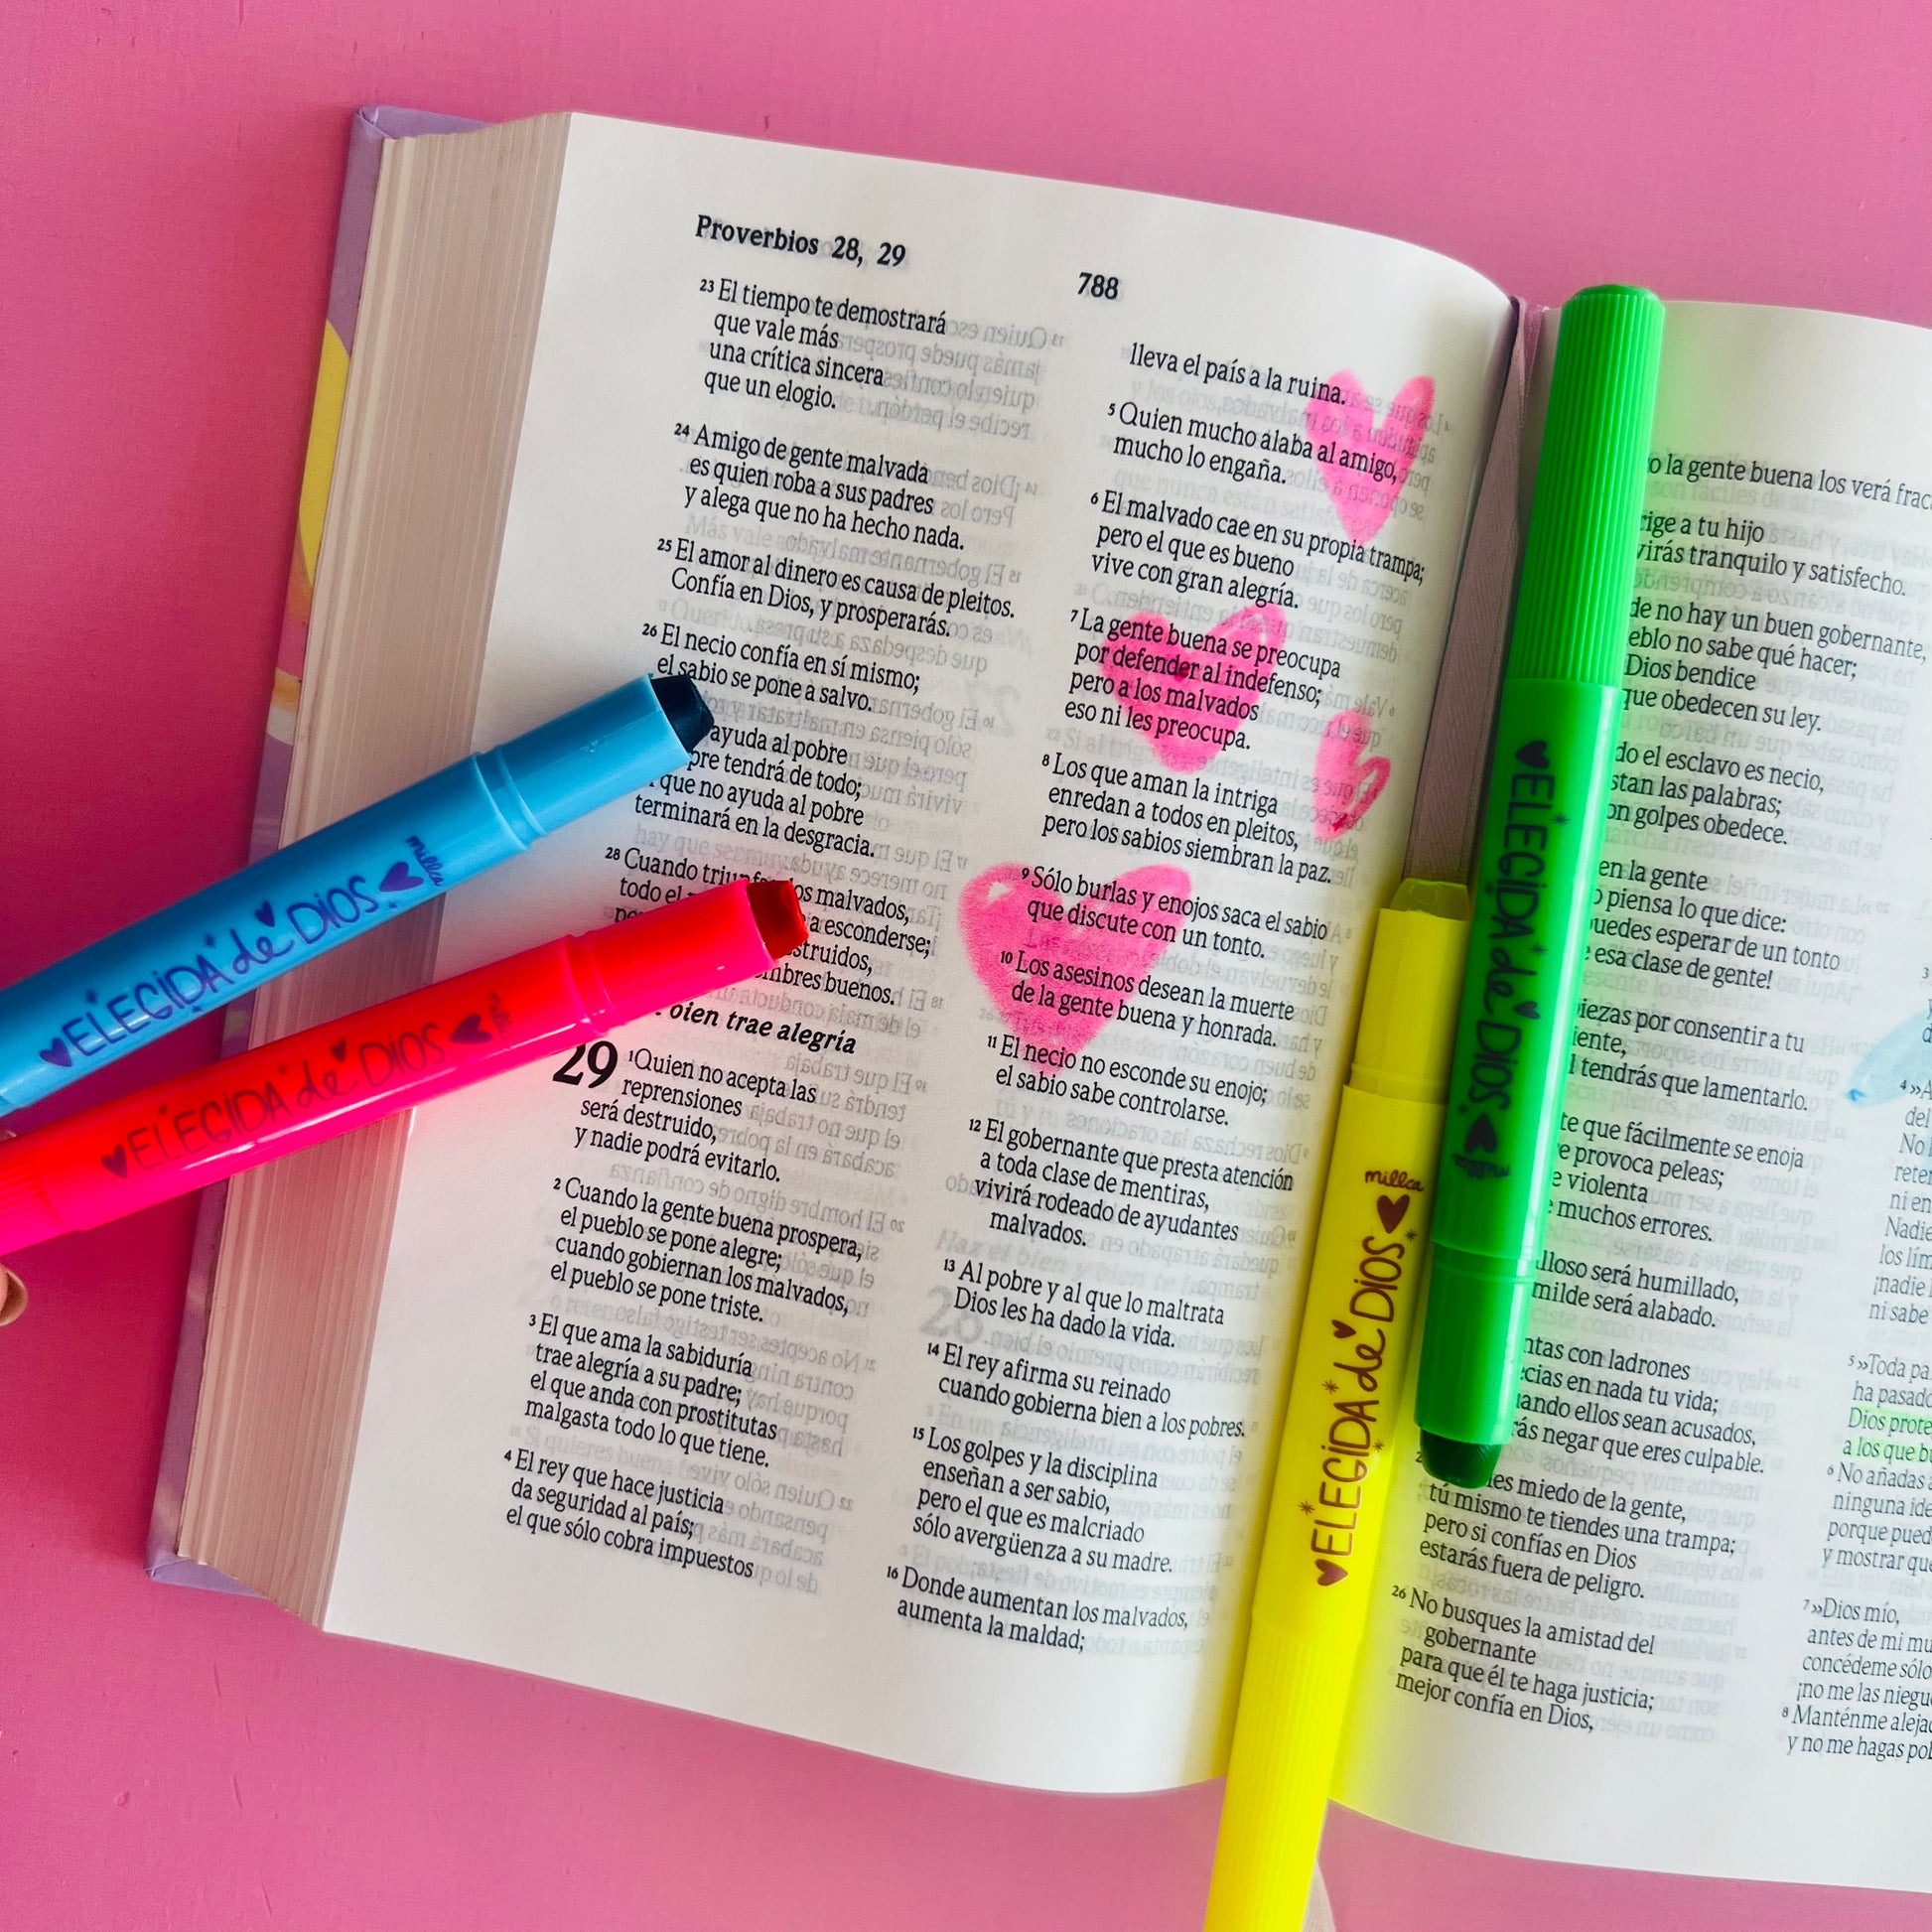 Proverbios 28, 29
788
23 El tiempo te demostrará
que vale más
una crítica sincera
que un elogio.
24 Amigo de gente malvada
es quien roba a sus padres
y alega que no ha hecho nada.
25 El amor al dinero es causa de pleitos.
Confía en Dios, y prosperarás.
26 El necio confía en sí mismo;
el sabio se pone a salvo.
ayuda al pobre
tendrá de todo;
que no ayuda al pobre
terminará en la desgracia.
28 Cuando los malvados,
todo el
a esconderse;
buenos.
trae alegría
29 1 Quien no acepta las
reprensiones
será destruido,
y nadie podrá evitarlo.
2 Cuando la gente buena prospera,
el pueblo se pone alegre;
cuando gobiernan los malvados,
el pueblo se pone triste.
3 El que ama la sabiduría
trae alegría a su padre;
el que anda con prostitutas
malgasta todo lo que tiene.
4 El rey que hace justicia
da seguridad al país;
el que sólo cobra impuestos
lleva el país a la ruina.
5 Quien mucho alaba al amigo,
mucho lo engaña.
6 El malvado cae en su propia trampa;
pero el que es bueno
vive con gran alegría.
7 La gente buena se preocupa
por defender al indefenso;
pero a los malvados
eso ni les preocupa.
8 Los que aman la intriga
enredan a todos en pleitos,
pero los sabios siembran la paz.
9 Sólo burlas y enojos saca el sabio
que discute con un tonto.
10 Los asesinos desean la muerte
de la gente buena y honrada.
11 El necio no esconde su enojo;
el sabio sabe controlarse.
12 El gobernante que presta atención
a toda clase de mentiras,
vivirá rodeado de ayudantes
malvados.
13 Al pobre y al que lo maltrata
Dios les ha dado la vida.
14 El rey afirma su reinado
cuando gobierna bien a los pobres.
15 Los golpes y la disciplina
enseñan a ser sabio,
pero el que es malcriado
sólo avergüenza a su madre.
16 Donde aumentan los malvados,
aumenta la maldad;
la gente buena los verá
a tu hijo
tranquilo y satisfecho.
no hay un buen gobernante,
no sabe qué hacer;
Dios bendice
que obedecen su ley.
el esclavo es necio,
las palabras;
golpes obedece.
en la gente
piensa lo que dice:
esperar de un tonto
esa clase de gente!
por consentir a tu
tendrás que lamentarlo.
que fácilmente se enoja
provoca peleas;
violenta
muchos errores.
será humillado,
será alabado.
con ladrones
en nada tu vida;
ellos sean acusados,
negar que eres culpable.
miedo de la gente,
tú mismo te tiendes una trampa;
pero si confías en Dios
estarás fuera de peligro.
26 No busques la amistad del
gobernante
para que él te haga justicia;
mejor confía en Dios,
4
del
No
ni en
Nadie
los
¡nadie
ni sabe
5 »Toda
ha pasado
Dios
a los que
6 No añadas
ninguna
porque
y mostrar
7 »Dios mío,
antes de mi
concédeme sólo
¡no me las
8 Manténme
y no me hagas
ELEGIDA de DIOS millca
ELEGIDA de DIOS
ELEGIDA de DIOS millca
ELEGIDA de DIOS millca